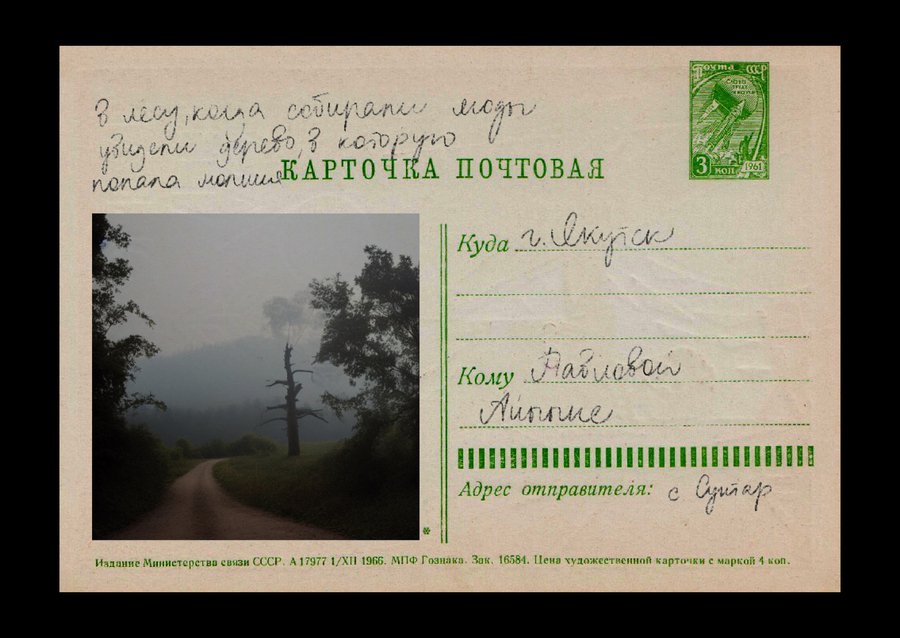 В лесу, когда собирали ягоды
увидели дерево, в которую
попала молния
КАРТОЧКА ПОЧТОВАЯ
Почта СССР
3 КОП 1961
Куда г. Якутск
Кому Павловой
Адрес отправителя: с Сунтар
*
Издание Министерства связи СССР. А 17977 1/XII 1966. МПФ Гознака. Зак. 16584. Цена художественной карточки с маркой 4 коп.